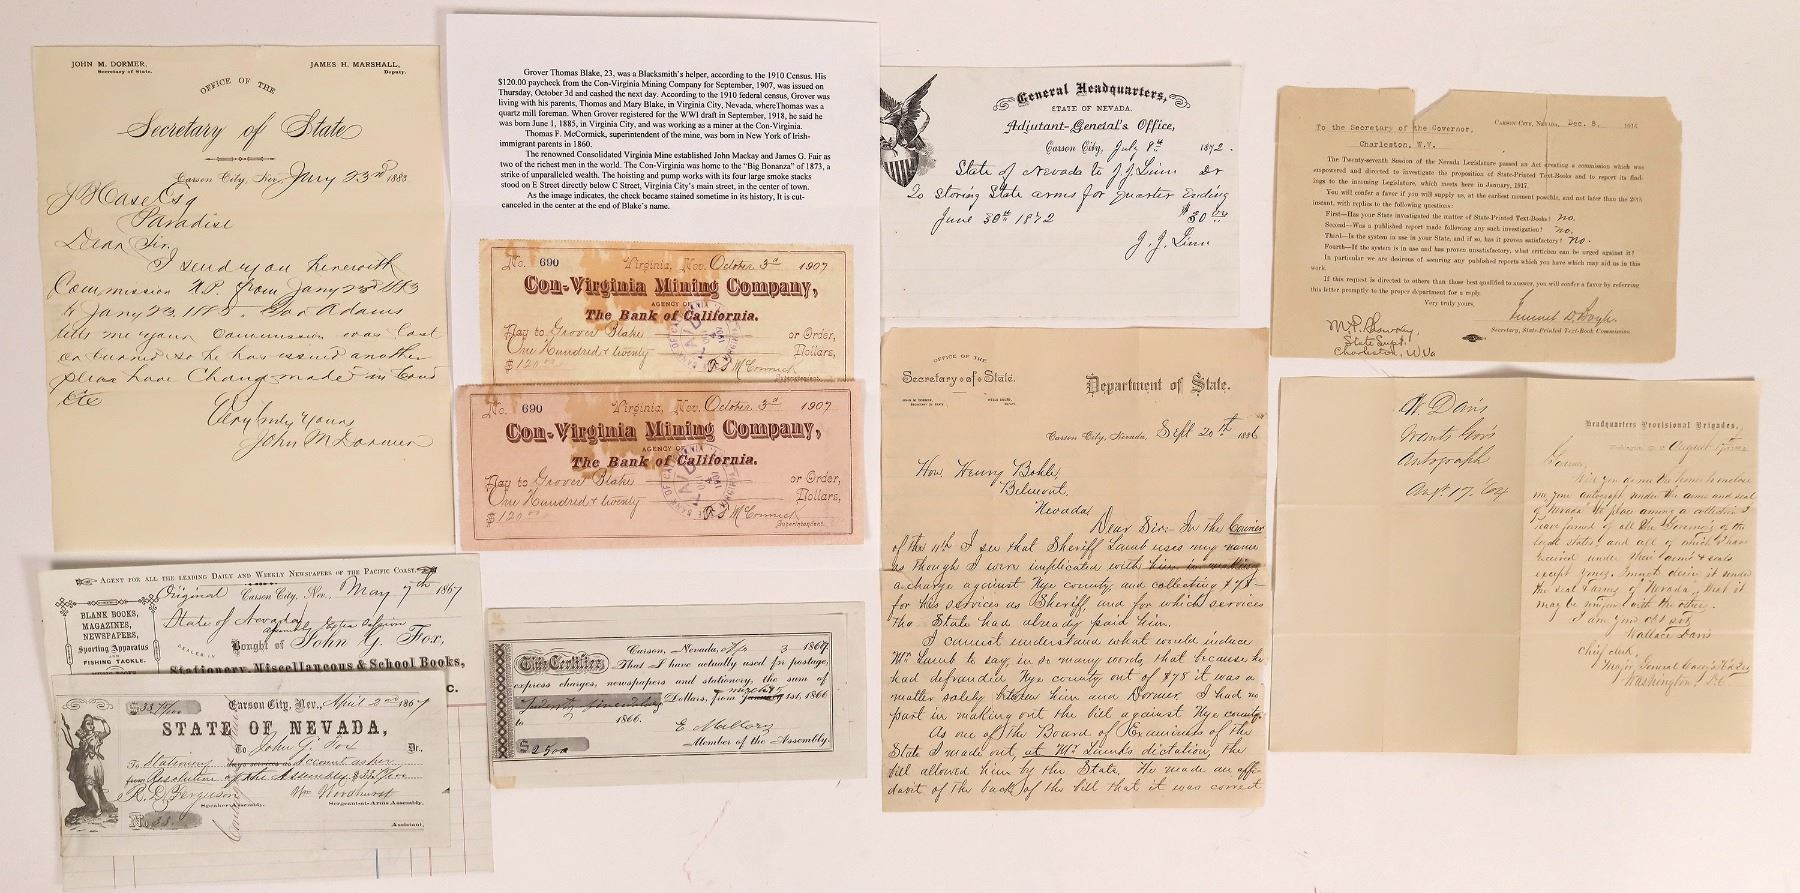 JOHN M. DORMER,
Secretary of State.
JAMES H. MARSHALL,
Deputy.
OFFICE OF THE
Secretary of State
Carson City, Nev. Jany 23rd 1883
J B Case Esq
Paradise
Dear Sir.
I send you herewith
Commission N.P. from Jany 23rd 1883
to Jany 23. 1885. Gov Adams
tells me your Commission was lost
or burned so he has issued another
please have Change made in Bond
Etc
Very truly Yours
John M Dormer
Grover Thomas Blake, 23, was a Blacksmith's helper, according to the 1910 Census. His
$120.00 paycheck from the Con-Virginia Mining Company for September, 1907, was issued on
Thursday, October 3d and cashed the next day. According to the 1910 federal census, Grover was
living with his parents, Thomas and Mary Blake, in Virginia City, Nevada, whereThomas was a
quartz mill foreman. When Grover registered for the WWI draft in September, 1918, he said he
was born June 1, 1885, in Virginia City, and was working as a miner at the Con-Virginia.
Thomas F. McCormick, superintendent of the mine, was born in New York of Irish-
immigrant parents in 1860.
The renowned Consolidated Virginia Mine established John Mackay and James G. Fair as
two of the richest men in the world. The Con-Virginia was home to the "Big Bonanza" of 1873, a
strike of unparalleled wealth. The hoisting and pump works with its four large smoke stacks
stood on E Street directly below C Street, Virginia City's main street, in the center of town.
As the image indicates, the check became stained sometime in its history, It is cut-
canceled in the center at the end of Blake's name.
No. 690 Virginia, Nev. October 3d 1907
Con-Virginia Mining Company,
AGENCY OF
The Bank of California.
Pay to Grover Blake or Order,
One Hundred & twenty Dollars,
$120.00 T F McCormick
Superintendent.
No. 690 Virginia, Nev. October 3d 1907
Con-Virginia Mining Company,
AGENCY OF
The Bank of California.
Pay to Grover Blake or Order,
One Hundred & twenty Dollars,
$120.00 T F McCormick
Superintendent.
General Headquarters,
STATE OF NEVADA.
Adjutant-General's Office,
Carson City, July 8th 1872.
State of Nevada to J. J. Linn Dr
To Storing State arms for quarter Ending
June 30th 1872 $30
J. J. Linn
CARSON CITY, NEVADA, Dec. 8, 1916
To the Secretary of the Governor,
Charleston, W.V.
The Twenty-seventh Session of the Nevada Legislature passed an Act creating a commission which was
empowered and directed to investigate the proposition of State-Printed Text-Books and to report its find-
ings to the incoming Legislature, which meets here in January, 1917.
You will confer a favor if you will supply us, at the earliest moment possible, and not later than the 20th
instant, with replies to the following questions:
First—Has your State investigated the matter of State-Printed Text-Books? no.
Second—Was a published report made following any such investigation? no.
Third—Is the system in use in your State, and if so, has it proven satisfactory? no.
Fourth—If the system is in use and has proven unsatisfactory, what criticism can be urged against it?
In particular we are desirous of securing any published reports which you have which may aid us in this
work.
If this request is directed to others than those best qualified to answer, you will confer a favor by referring
this letter promptly to the proper department for a reply.
Very truly yours,
Secretary, State-Printed Text-Book Commission.
M. P. Shawkey,
State Supt.
Charleston, W Va
OFFICE OF THE
Secretary of State.
JOHN M. DORMER,
SECRETARY OF STATE
DEPUTY.
Department of State.
Carson City, Nevada, Sept 20th 1886
Hon. Henry Bohle,
Belmont,
Nevada
Dear Sir:- In the Courier
of the 11th I see that Sheriff Lamb uses my name
as though I were implicated with him in making
a charge against Nye county, and collecting $78-
for his services as Sheriff, and for which services
the State had already paid him.
I cannot understand what would induce
Mr Lamb to say, in so many words, that because he
had defrauded Nye county out of $78 it was a
matter solely between him and Dormer. I had no
part in making out the bill against Nye county.
As one of the Board of Examiners of the
State I made out, at Mr Lamb's dictation, the
bill allowed him by the State. He made an affi-
davit of the back of the bill that it was correct
W. Davis
Wants Gov's
Autograph
Augt 17, '64
Headquarters Provisional Brigades,
August 17th
Governor,
Will you do me the honor to enclose
me your autograph under the arms and seal
of Nevada to place among a collection I
have formed of all the Governors of the
loyal states, and all of which I have
received under their arms & seals
except yours. I must desire it under
the seal & arms of Nevada, that it
may be uniform with the others.
I am your obt svt
Wallace Davis
Chief clerk,
Major General Casey's Hd Qrs
Washington, D.C.
AGENT FOR ALL THE LEADING DAILY AND WEEKLY NEWSPAPERS OF THE PACIFIC COAST.
Original Carson City, Nev., May 7th 1867
State of Nevada
Bought of John G. Fox,
DEALER IN
Stationery, Miscellaneous & School Books,
BLANK BOOKS,
MAGAZINES,
NEWSPAPERS,
Sporting Apparatus
AND
FISHING TACKLE.
Carson City, Nev., April 2nd 1867
STATE OF NEVADA,
To John G. Fox Dr.,
To Stationery days services as Account as per
from Resolution of the Assembly
R. D. Ferguson Wm Woodhurst
Speaker Assembly. Sergeant-at-Arms, Assembly,
No. 33.
Assistant,
Carson, Nevada, 3 1867.
This Certifies That I have actually used for postage,
express charges, newspapers and stationery, the sum of
Twenty five Dollars, from January 1st, 1866
to 1866.
$25.00
Member of the Assembly.